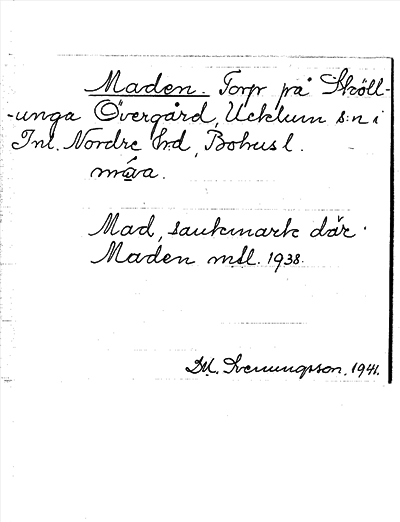 Maden. Torp på Sköll-
-unga Övergård, Ucklum s:n i
Inl. Nordre hrd, Bohusl.
máva.
Mad, sankmark där.
Maden msl. 1938.
D.U. Svenungsson. 1941.